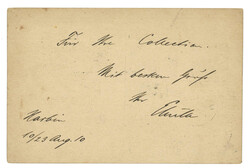 Für Ihre Collection.
Mit besten Gruß
Ihr
Harbin
10/23 Aug. 10